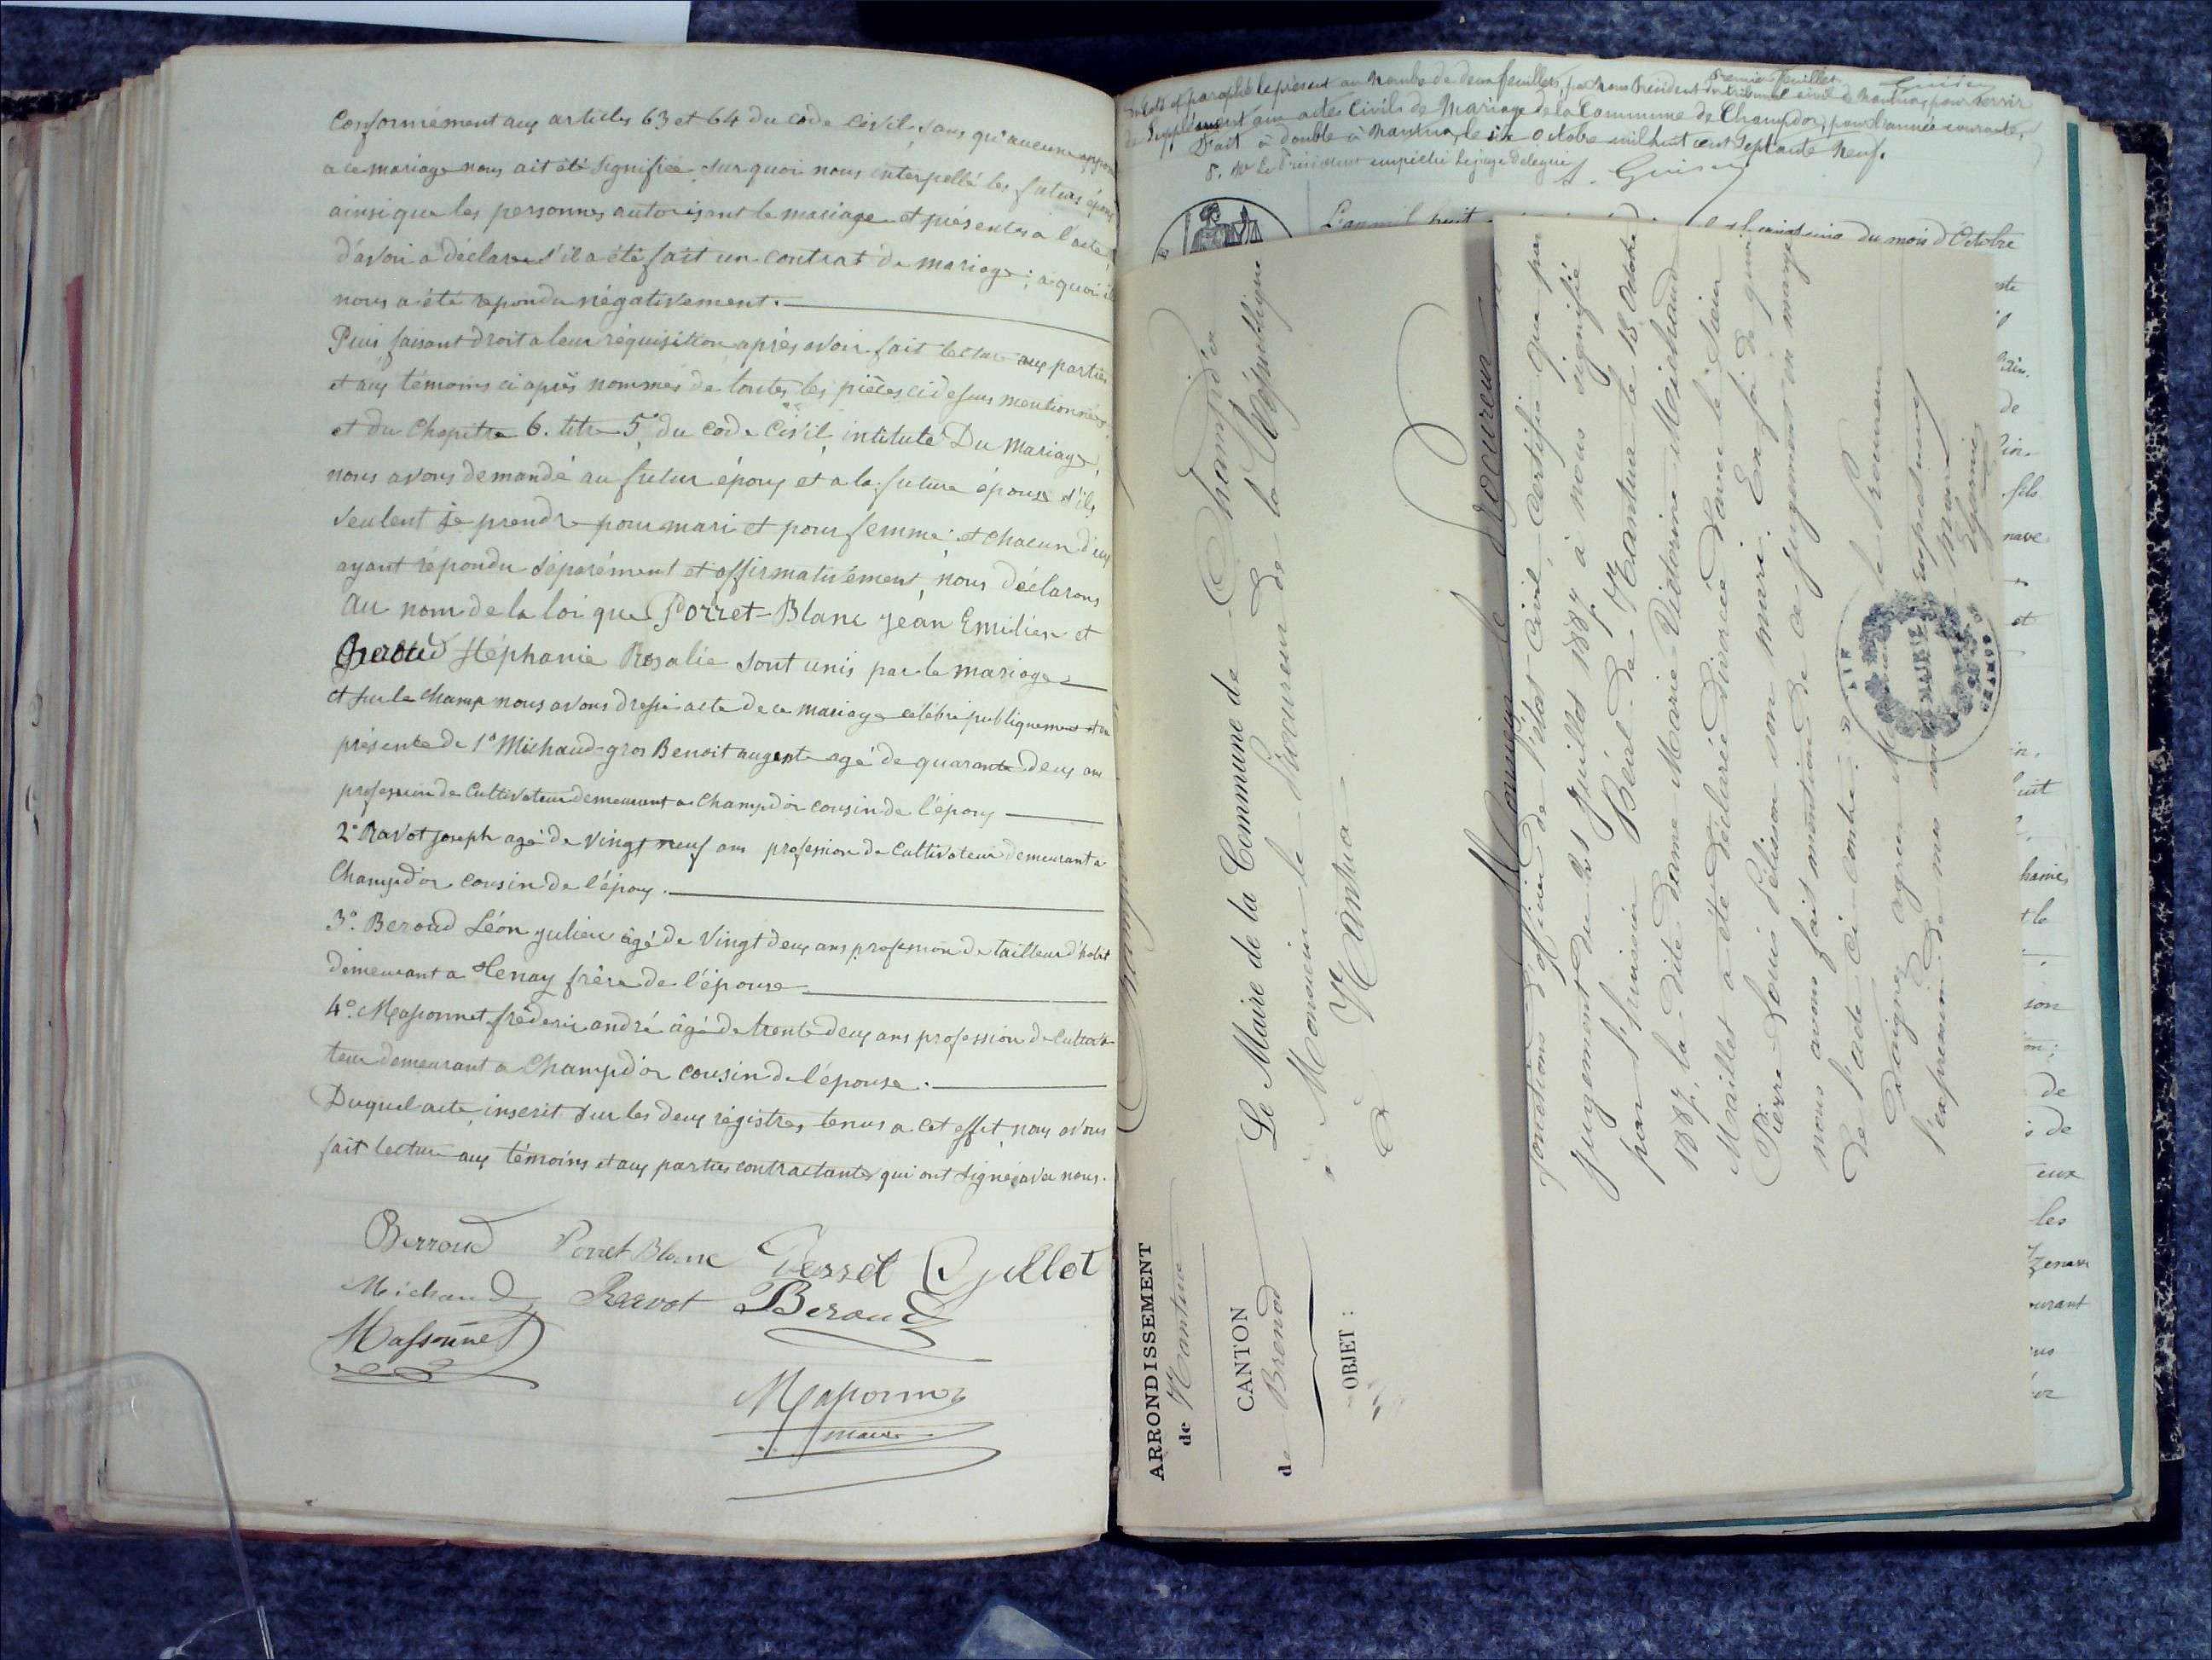 Conformément aux articles 63 et 64 du code Civil, sans qu'aucune
a ce mariage nous ait été signifiée, sur quoi nous interpellé les futurs époux
ainsi que les personnes autorisant le mariage et présentes a l'acte
d'avoir a déclarer s'il a été fait un contrat de mariage; a quoi il
nous a été repondu négativement.
Puis faisant droit a leur réquisition après avoir fait lecture aux parties
et aux témoins ci après nommés de toutes les pièces ci dessus mentionnées,
et du Chapitre 6. titre 5, du code Civil, intitulé Du Mariage,
nous avons demandé au futur époux et a la future épouse s'ils
veulent se prendre pour mari et pour femme; et chacun d'eux
ayant répondu séparément et affirmativement, nous déclarons
Au nom de la loi que Porret-Blanc Jean Emilien et
Beroud Stéphanie Rosalie sont unis par le mariage
et sur le champ nous avons dressé acte de ce mariage célébré publiquement en
présence de 1° Michaud-gros Benoit auguste agé de quarante deux ans
profession de Cultivateur demeurant a Champdor cousin de l'époux
2° Ravot Joseph agé de vingt neuf ans profession de Cultivateur demeurant a
Champdor cousin de l'époux.
3° Beroud Léon Julien âgé de Vingt deux ans profession de tailleur d'habit
demeurant a Henay frère de l'épouse
4° Massonnet fréderic andré âgé de trente deux ans profession de Cultiva
teur demeurant a Champdor cousin de l'épouse.
Duquel acte, inscrit sur les deux régistres tenus a cet effet, nous avons
fait lecture aux témoins et aux parties contractantes qui ont signé avec nous.
Berroud Porret Blanc Perret Gullot
Michaud Ravot Beroud
Massonnet
Massonnet
maire
premier feuillet
Coté et paraphé le présent au nombre de deux feuillets, par Nous Président du tribunal civil de Nantua, pour servir
de Supplément aux actes Civils de Mariage de la Commune de Champdor, pour l'année courante.
Fait à double à Nantua, le six Octobre mil huit cent septante neuf.
P. Mr Le Président empêché Le juge délégué
L'an mil huit
du mois d'Octobre
ARRONDISSEMENT
de Nantua
CANTON
de Brenod
OBJET :
Le Maire de la Commune de Champdor
à Monsieur le Procureur de la République
à Nantua
Monsieur le Procureur
fonctions d'officier de l'état civil, certifie que par
Jugement du 21 Juillet 1887 à nous signifié
par l'huissier Béal de Nantua le 18 Octobre
1887, la dite dame Marie Victorine Michaud
Maillet a été déclarée divorcée d'avec le Sieur
Pierre Louis Pélisson son mari. En foi de quoi
nous avons fait mention de ce jugement en marge
de l'acte ci-contre.
Daignez agréer Monsieur le Procureur
l'expression de mes respectueux
Maire
MAIRIE
AIN
CHAMPDOR